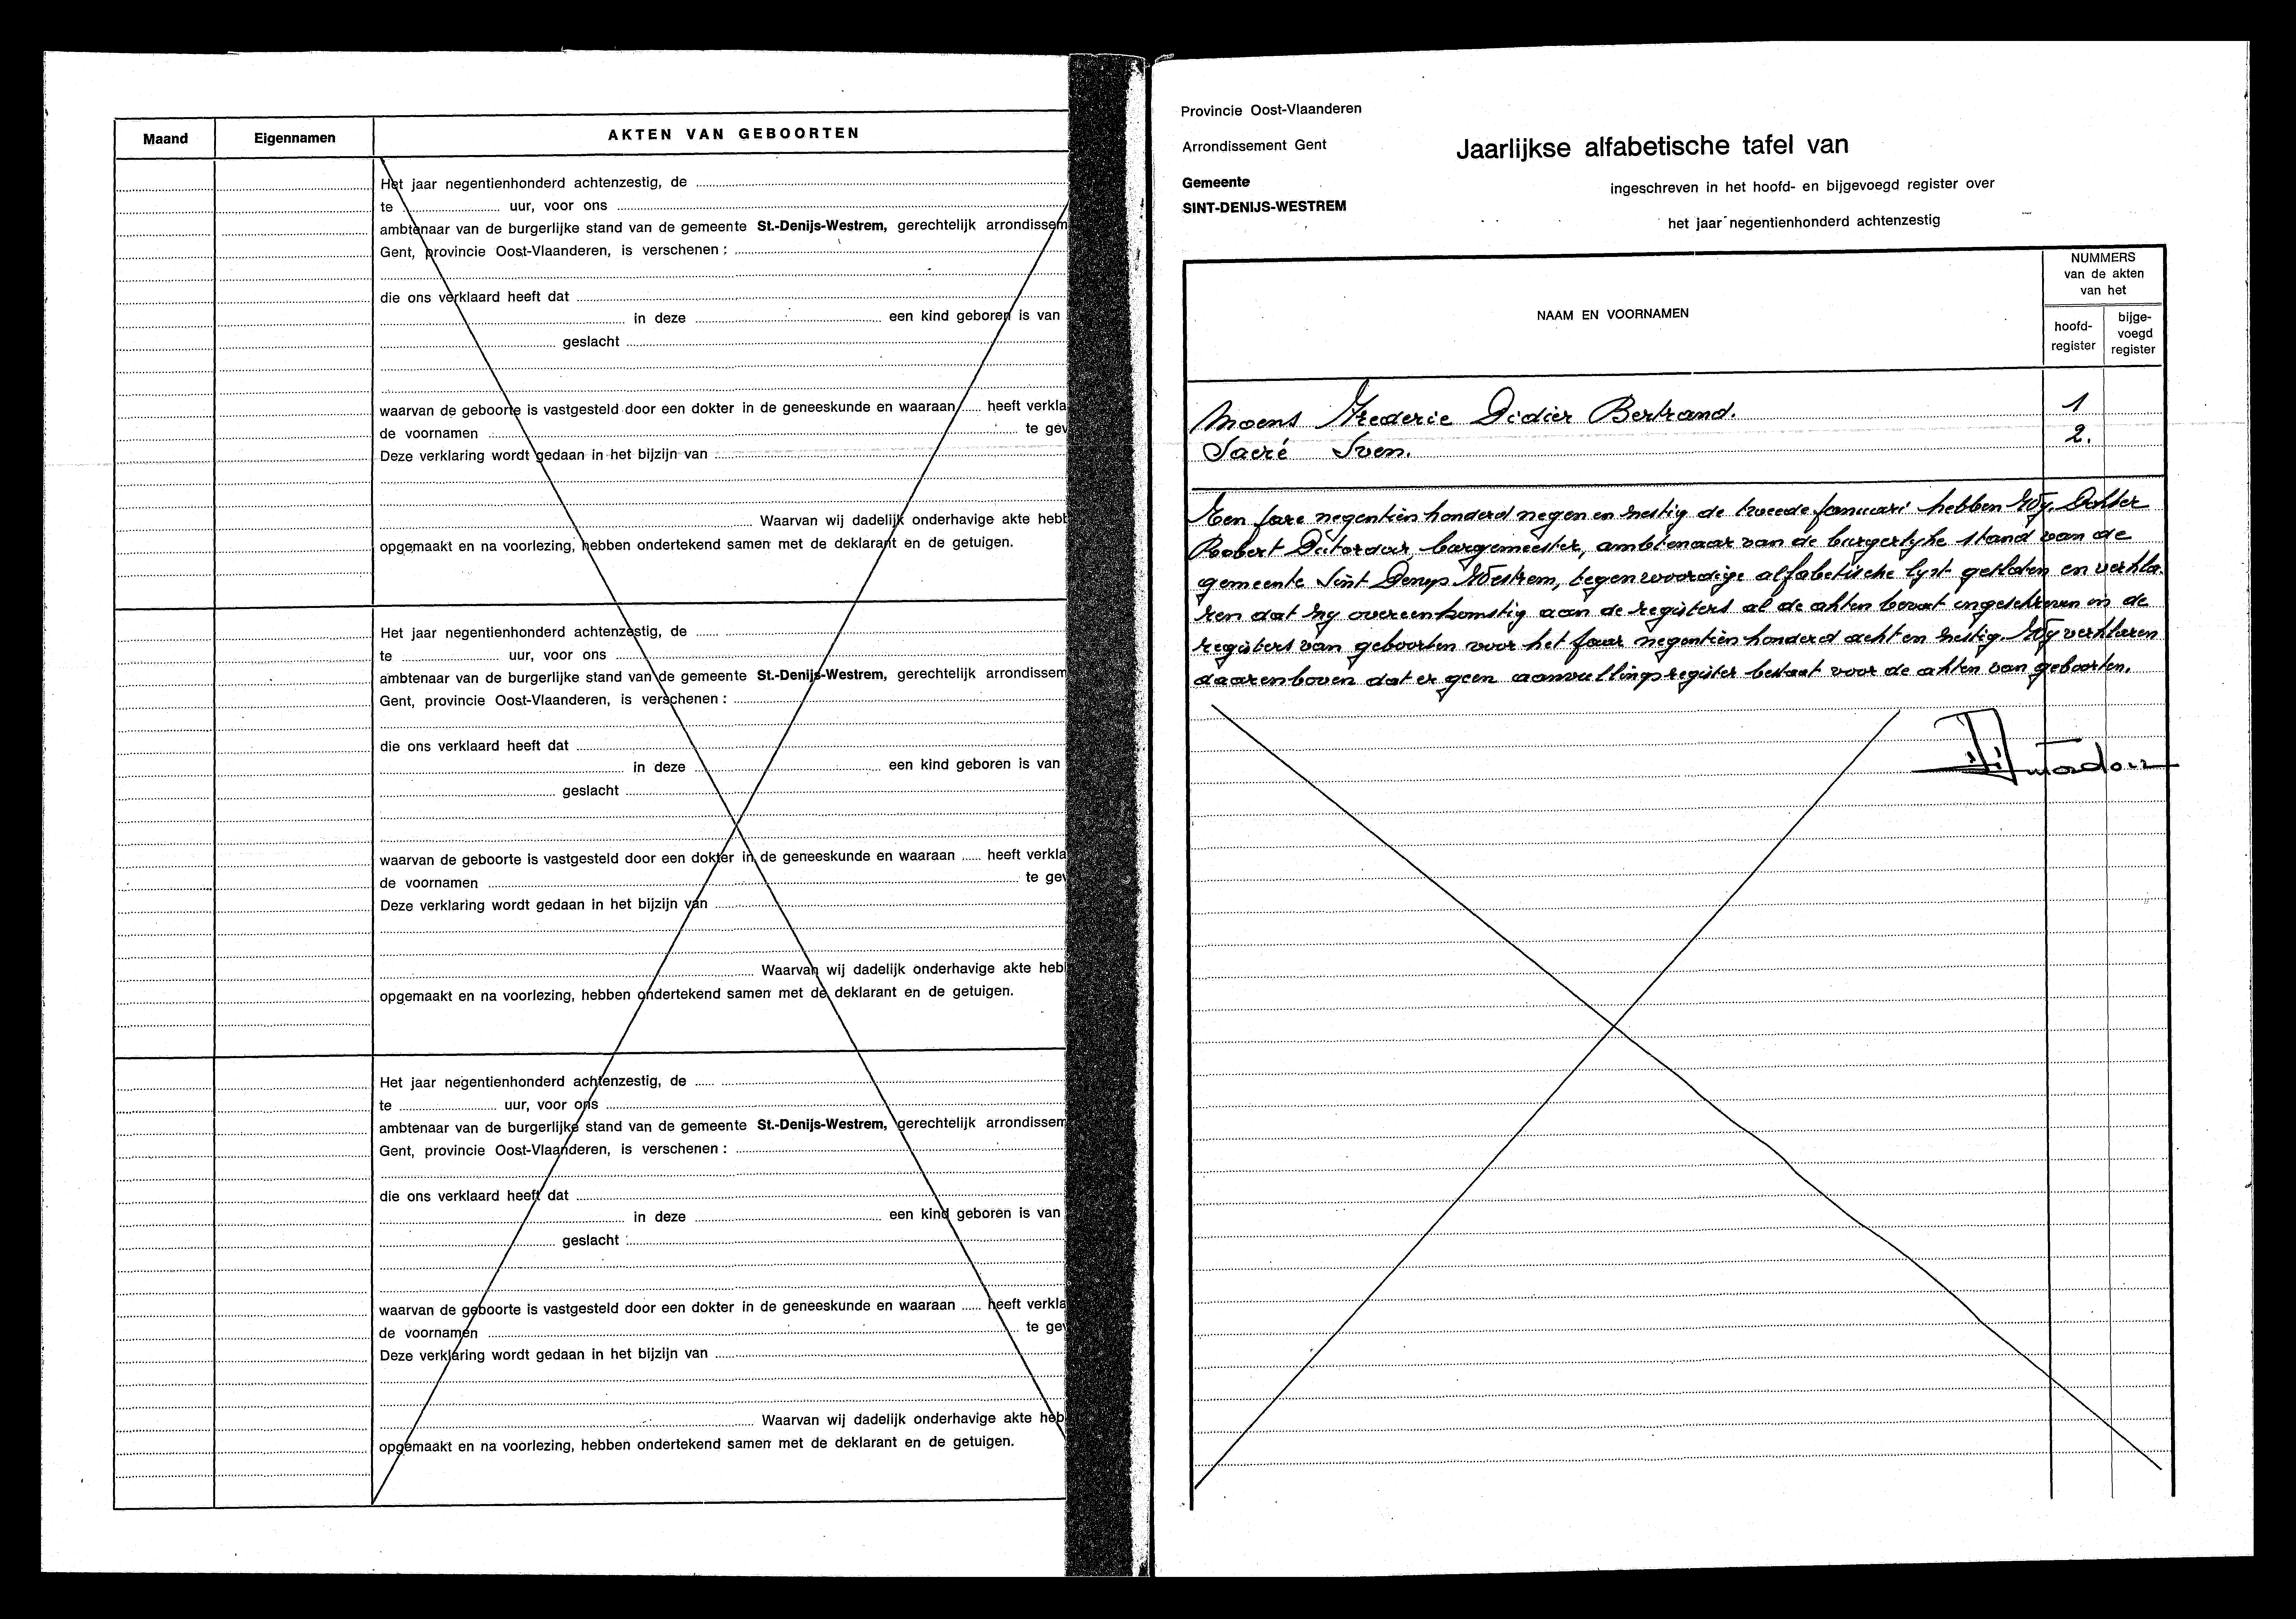 Maand Eigennamen AKTEN VAN GEBOORTEN
Het jaar negentienhonderd achtenzestig, de
te uur, voor ons
ambtenaar van de burgerlijke stand van de gemeente St.-Denijs-Westrem, gerechtelijk arrondissem
Gent, provincie Oost-Vlaanderen, is verschenen :
die ons verklaard heeft dat
in deze een kind geboren is van
geslacht
waarvan de geboorte is vastgesteld door een dokter in de geneeskunde en waaraan heeft verkla
de voornamen te gev
Deze verklaring wordt gedaan in het bijzijn van
Waarvan wij dadelijk onderhavige akte hebb
opgemaakt en na voorlezing, hebben ondertekend samen met de deklarant en de getuigen.
Het jaar negentienhonderd achtenzestig, de
te uur, voor ons
ambtenaar van de burgerlijke stand van de gemeente St.-Denijs-Westrem, gerechtelijk arrondissem
Gent, provincie Oost-Vlaanderen, is verschenen :
die ons verklaard heeft dat
in deze een kind geboren is van
geslacht
waarvan de geboorte is vastgesteld door een dokter in de geneeskunde en waaraan heeft verkla
de voornamen te gev
Deze verklaring wordt gedaan in het bijzijn van
Waarvan wij dadelijk onderhavige akte heb
opgemaakt en na voorlezing, hebben ondertekend samen met de deklarant en de getuigen.
Het jaar negentienhonderd achtenzestig, de
te uur, voor ons
ambtenaar van de burgerlijke stand van de gemeente St.-Denijs-Westrem, gerechtelijk arrondissem
Gent, provincie Oost-Vlaanderen, is verschenen :
die ons verklaard heeft dat
in deze een kind geboren is van
geslacht
waarvan de geboorte is vastgesteld door een dokter in de geneeskunde en waaraan heeft verkla
de voornamen te gev
Deze verklaring wordt gedaan in het bijzijn van
Waarvan wij dadelijk onderhavige akte heb
opgemaakt en na voorlezing, hebben ondertekend samen met de deklarant en de getuigen.
Provincie Oost-Vlaanderen
Arrondissement Gent
Jaarlijkse alfabetische tafel van
Gemeente
SINT-DENIJS-WESTREM
ingeschreven in het hoofd- en bijgevoegd register over
het jaar negentienhonderd achtenzestig
NAAM EN VOORNAMEN
NUMMERS
van de akten
van het
hoofd-
register
bijge-
voegd
register
Moens Frederic Didier Bertrand. 1
Sacré Sven. 2.
Ten jare negentien honderd negen en zestig de tweede januari hebben Wy, Dokter
Robert Dutordoir, burgemeester, ambtenaar van de burgerlyke stand van de
gemeente Sint Denys Westrem, tegenwoordige alfabetische lyst gesloten en verkla-
ren dat zy overeenkomstig aan de registers al de akten bevat ingeschreven in de
registers van geboorten voor het jaar negentien honderd acht en zestig. Wy verklaren
daarenboven dat er geen aanvullingsregister bestaat voor de akten van geboorten.